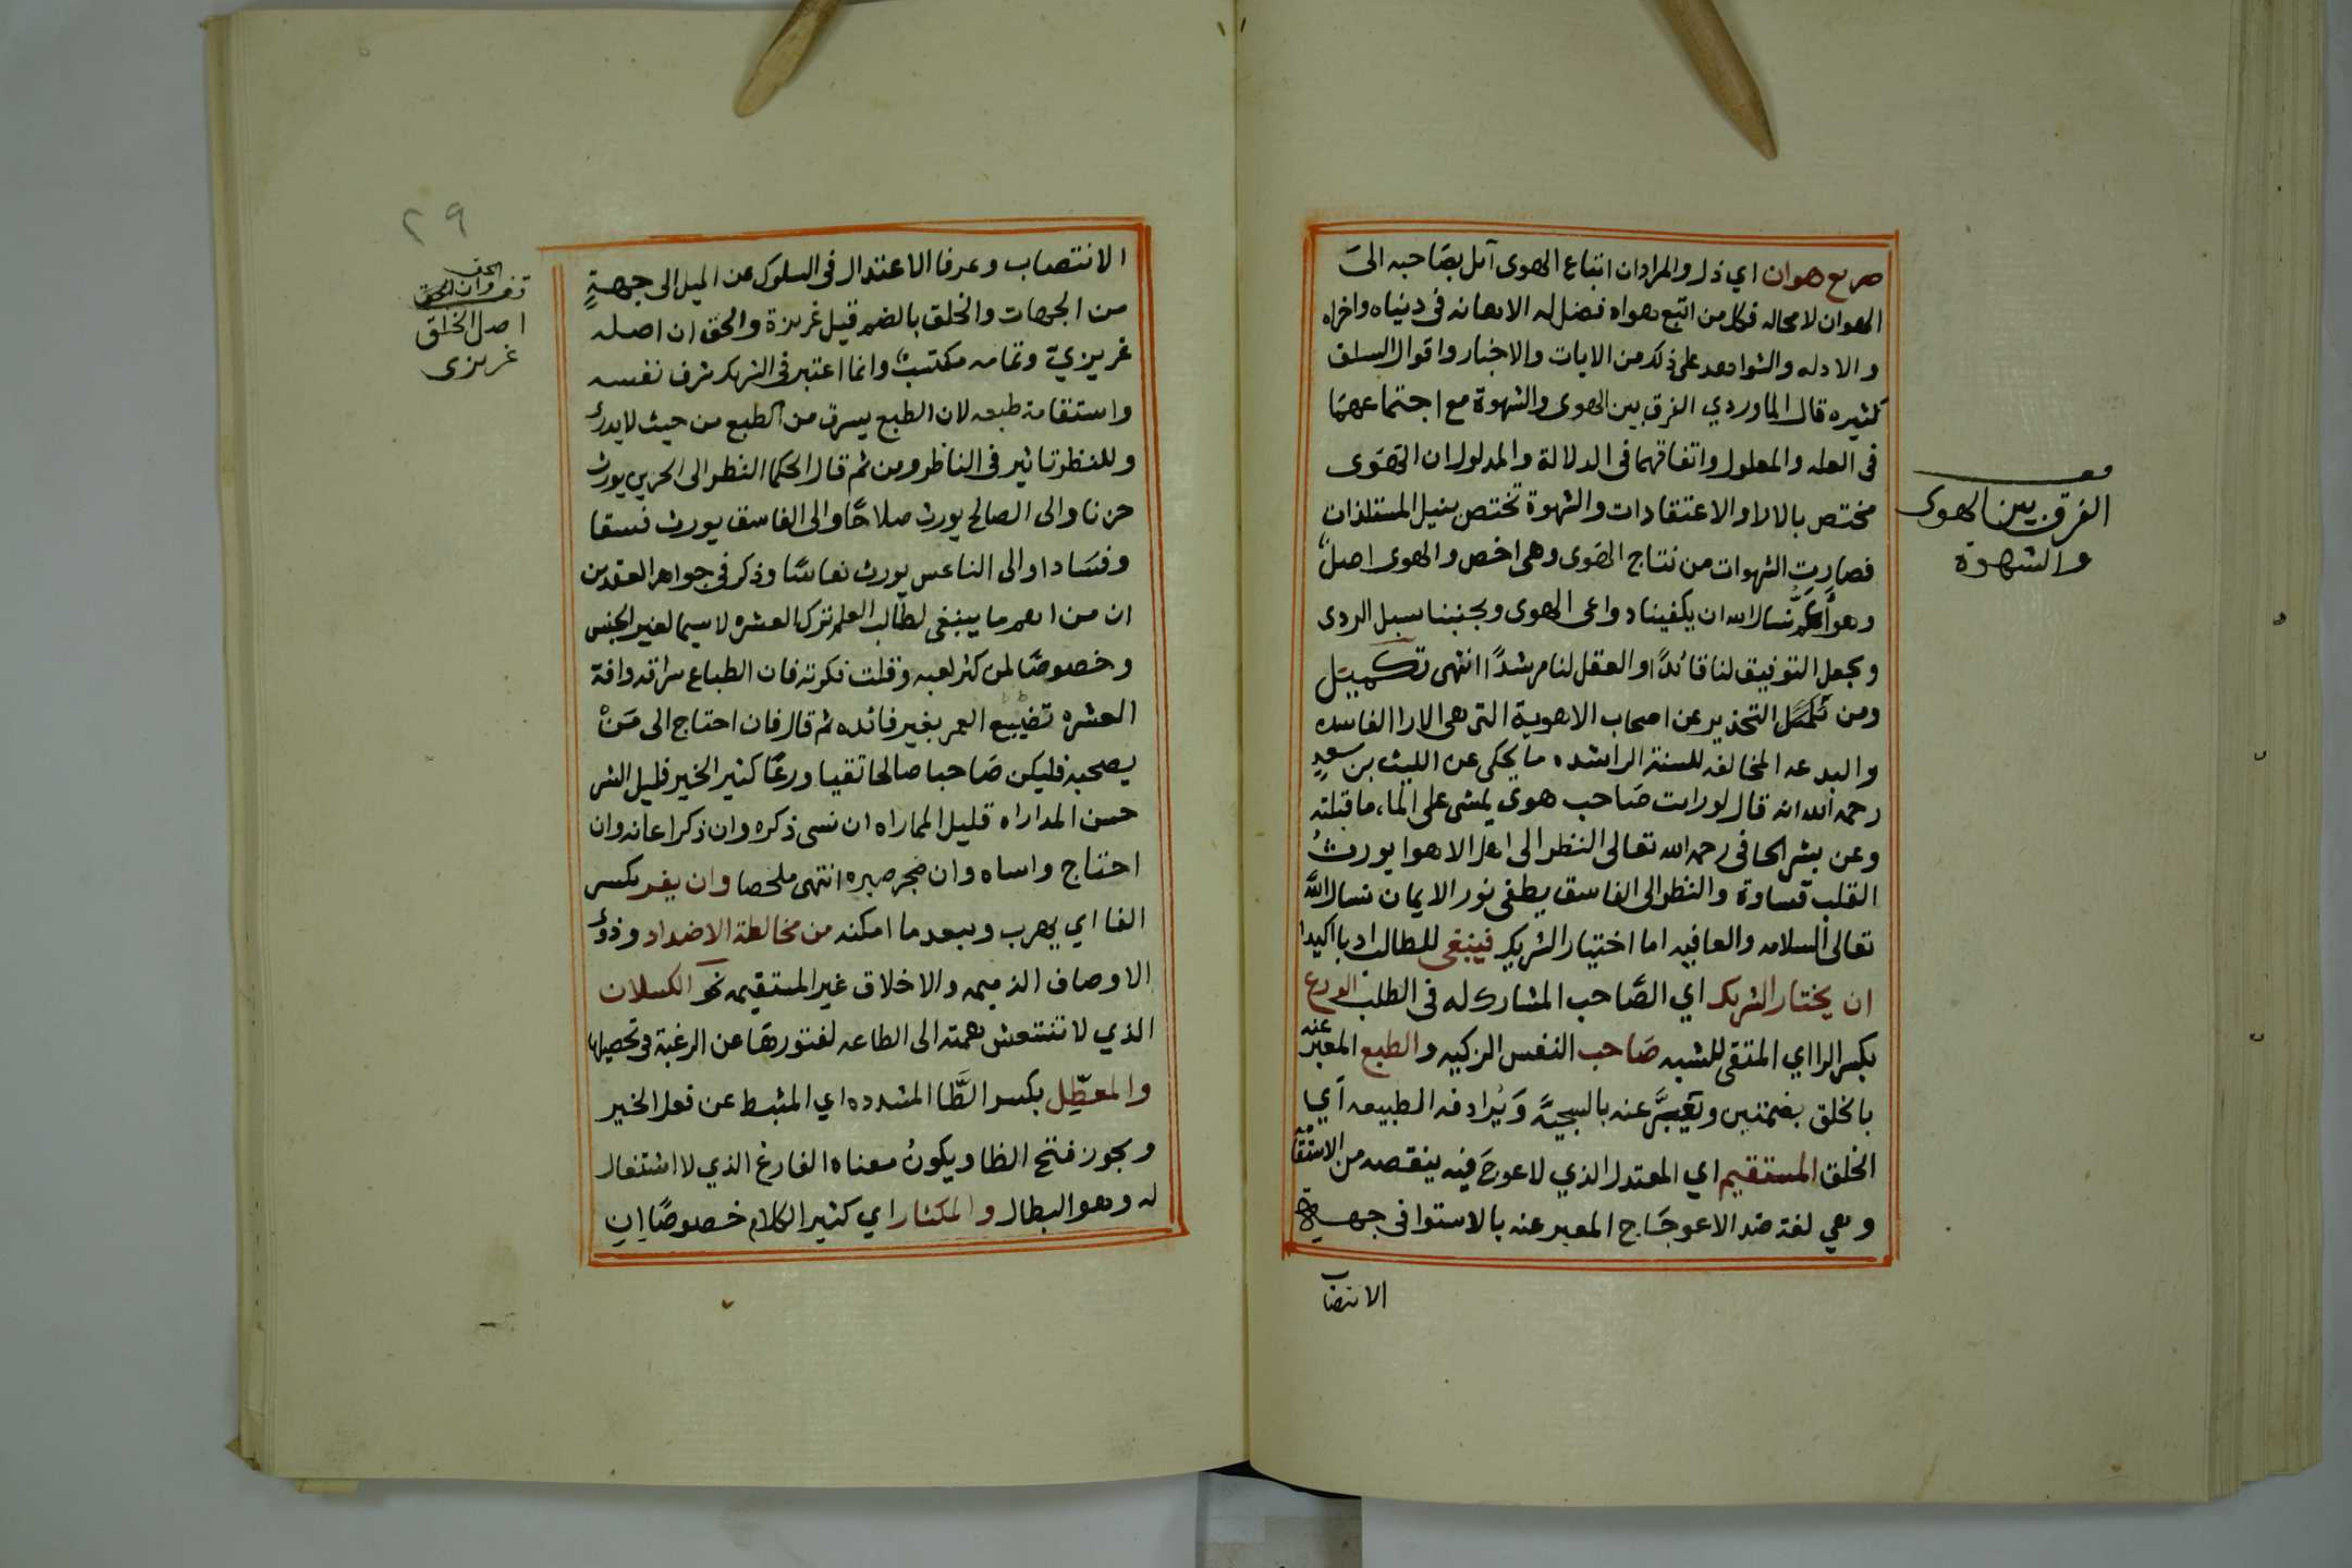 صريع هوان اي ذل والمراد ان اتباع الهوى آيل بصاحبه الى
الهوان لا محاله فكل من اتبع هواه فضل له الاهانه في دنياه واخراه
والادله والشواهد على ذلك من الايات والاخبار واقوال السلف
كثيره قال الماوردي الفرق بين الهوى والشهوة مع اجتماعهما
في العله والمعلول واتفاقهما في الدلالة والمدلول ان الهوى
مختص بالارا والاعتقادات والشهوة تختص بنيل المستلذات
فصارت الشهوات من نتاج الهوى وهي اخص والهوى اصل
وهو اعم نسال الله ان يكفينا دواعي الهوى ويجنبنا سبل الردى
ويجعل التوفيق لنا قائدًا والعقل لنا مرشدًا انتهى تكميل
ومن تكمل التحذير عن اصحاب الاهوية التي هي الارا الفاسده
والبدعه المخالفه للسنة الراشده ما يحكى عن الليث بن سعدٍ
رحمه الله انه قال لو رايت صَاحب هوى يمشي على الماء ما قبلته
وعن بشر الحافي رحمه الله تعالى النظر الى اهل الاهوا يورثُ
القلب قساوة والنظر الى الفاسق يطفي نور الايمان نسال الله
تعالى السلامه والعافيه اما اختيار الشريك فينبغي للطالب ادبا اكيدا
ان يختار الشريك اي الصَّاحب المشارك له في الطلب الورع
بكسر الرا اي المتقي للشبه صَاحب النفس الزكيه والطبع المعبر عنه
بالخلق بضمتين ويعبَّر عنه بالسجيَّة وَيُرادفه الطبيعه أي
الخلق المستقيم اي المعتدل الذي لا عوجَ فيه ينقصه من الاستقامة
وهي لغة ضد الاعوجَاج المعبر عنه بالاستوا في جهة
الانتصاب
معـ
الفرق بين الهوى
والشهوة
٢٩
الانتصاب وعرفا الاعتدال في السلوك عن الميل الى جهةٍ
من الجهات والخلق بالضم قيل غريزة والحق ان اصله
غريزيّ وتمامه مكتسب وانما اعتبر في الشريك شرف نفسه
واستقامة طبعه لان الطبع يسرق من الطبع من حيث لا يدرى
وللنظر تاثير في الناظر ومن ثم قال الحكما النظر الى الحزين يورث
حزنا والى الصالح يورث صلاحًا والى الفاسق يورث فسقا
وفسَادا والى الناعس يورث نعاسًا وذكر في جواهر العقدين
ان من اهم ما ينبغي لطالب العلم ترك العشره لا سيما لغير الجنس
وخصوصًا لمن كثر لعبه وقلت فكرته فان الطباع سراقه وافة
العشره تضييع العمر بغير فائده ثم قال فان احتاج الى مَنْ
يصحبه فليكن صَاحبا صالحا تقيا ورعًا كثير الخير قليل الشر
حسن المداراه قليل المماراه ان نسى ذكره وان ذكر اعانه وان
احتاج واساه وان ضجر صبره انتهى ملخصا وان يفر بكسر
الفا اي يهرب ويبعد ما امكنه من مخالطة الاضداد وذوى
الاوصاف الذميمه والاخلاق غير المستقيمه نحو الكسلان
الذي لا تنتعش همته الى الطاعه لفتورهَا عن الرغبة في تحصيلها
والمعطِّل بكسر الطَّا المشدده اي المثبط عن فعل الخير
ويجوز فتح الطا ويكونُ معناه الفارغ الذي لا اشتغال
له وهو البطال والمكثار اي كثير الكلام خصوصًا ان
قف وان الحق
اصل الخلق
غريزى